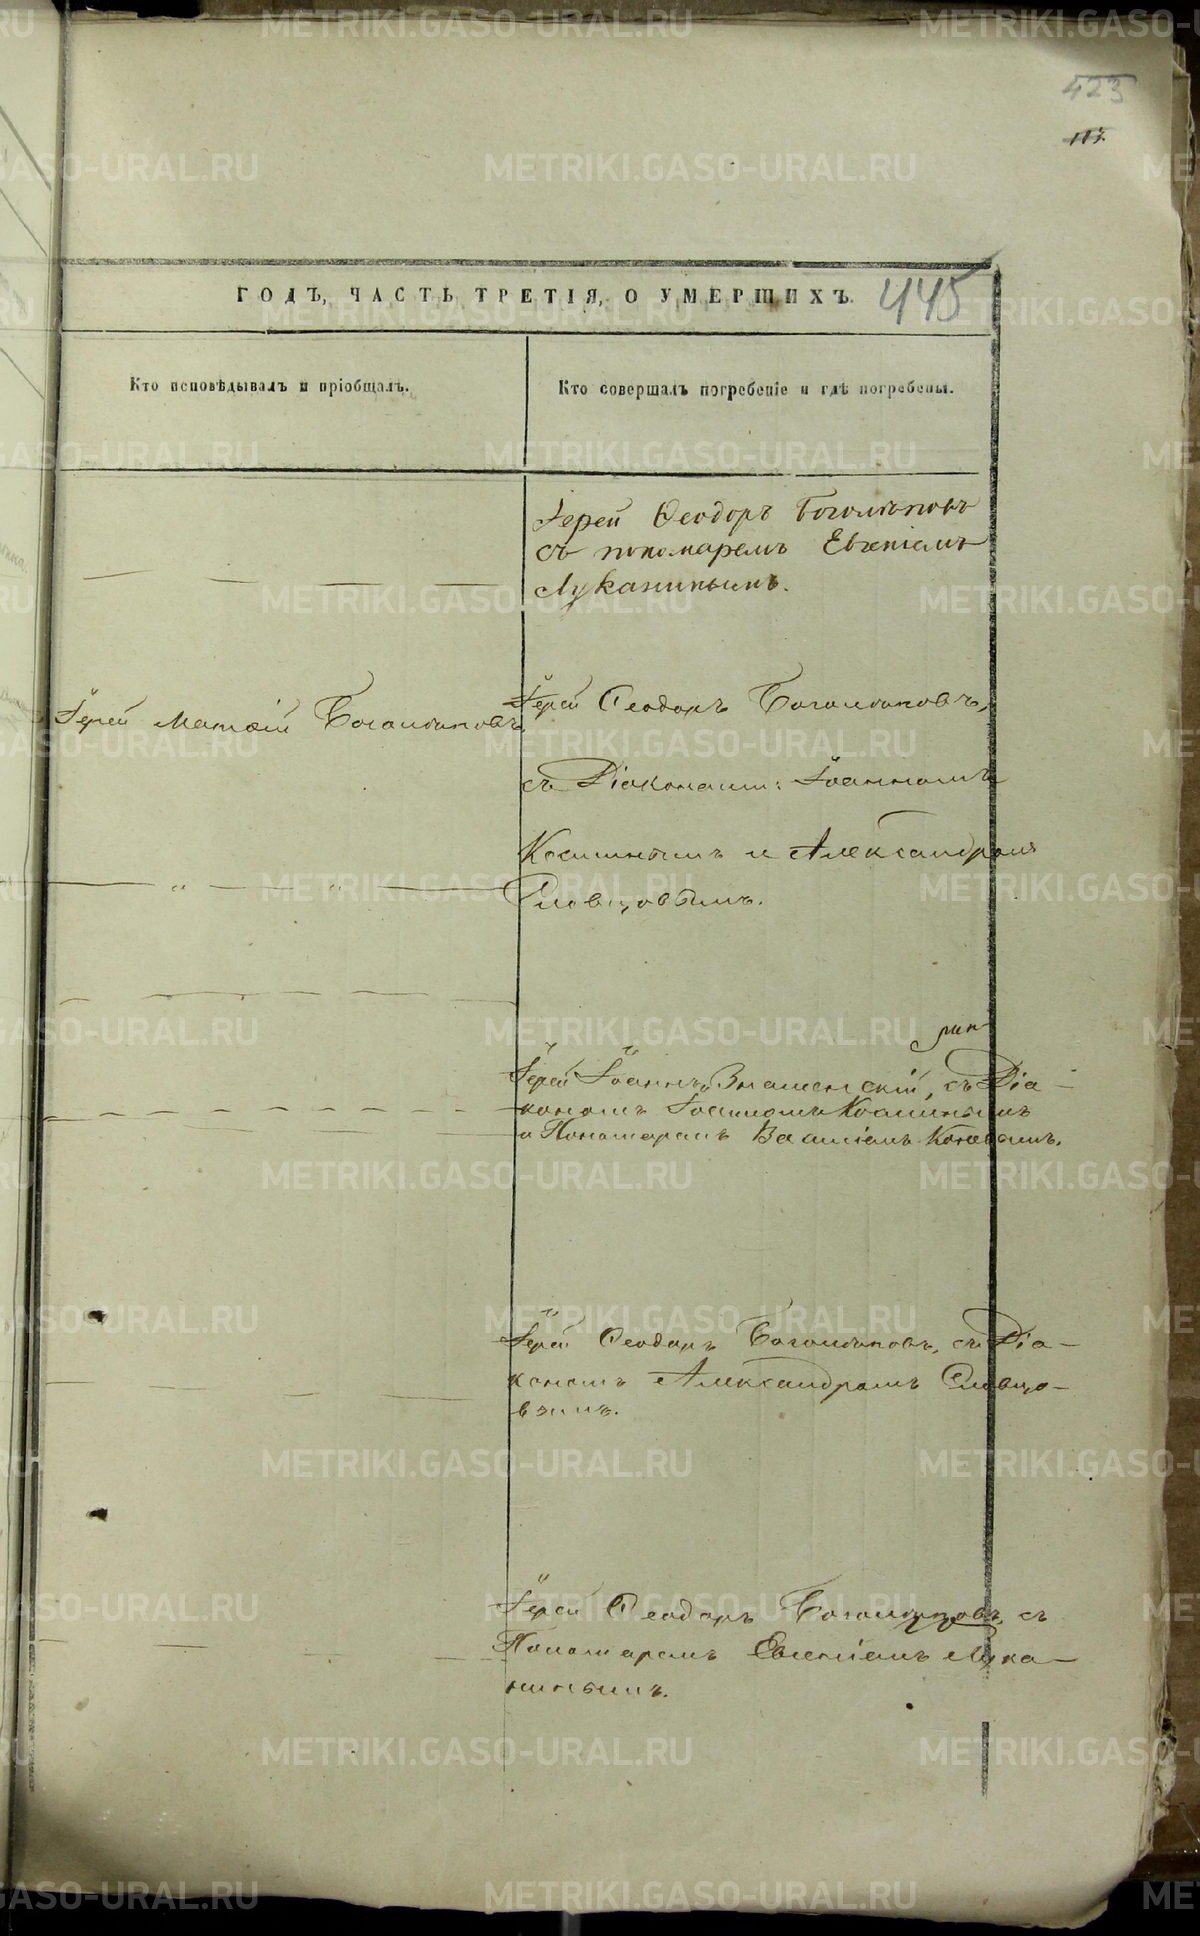 423
117.
ГОДЪ, ЧАСТЬ ТРЕТІЯ, О УМЕРШИХЪ.
445
Кто исповѣдывалъ и пріобщалъ.
Кто совершалъ погребеніе и гдѣ погребены.
Іерей Ѳеодоръ Боголѣповъ
съ пономаремъ Евгеніемъ
Луканинымъ.
Іерей Матѳій Боголѣповъ
Іерей Ѳеодоръ Боголѣповъ,
съ Діаконами: Іоанномъ
и Александромъ
Словцовымъ.
Іерей Іоаннъ Знаменскій, съ Діа-
кономъ Іоанномъ
и Пономаремъ
Іерей Ѳеодоръ Боголѣповъ, съ Діа-
кономъ Александромъ Словцо-
вымъ.
Іерей Ѳеодоръ Боголѣповъ, съ
Пономаремъ Евгеніемъ Лука-
нинымъ.
METRIKI.GASO-URAL.RU